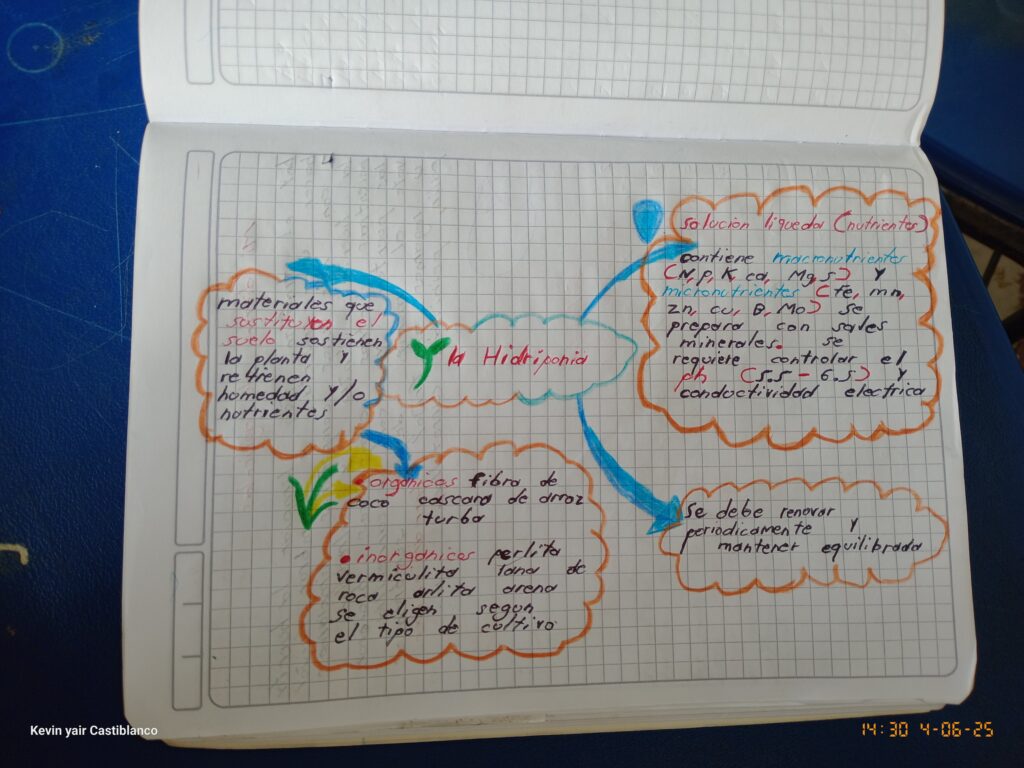 la Hidriponia
materiales que
sustituyen el
suelo sostienen
la planta y
retienen
humedad y/o
nutrientes
• organicos fibra de
coco cascara de arroz
turba
• inorganicos perlita
vermiculita lana de
roca arlita arena
se eligen segun
el tipo de cultivo
solucion liqueda (nutrientes)
contiene macronutrientes
(N, P, K, ca, Mg, s) Y
micronutrientes (fe, mn,
zn, cu, B, Mo) se
prepara con sales
minerales. se
requiere controlar el
ph (5.5 - 6.5) Y
conductividad electrica
se debe renovar
periodicamente y
mantener equilibrada
Kevin yair Castiblanco
14:30 4-06-25